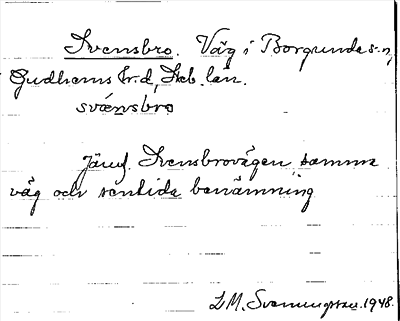 Svensbro. Väg i Borgunda s:n,
Gudhems hrd, Skb. län.
svænsbro
Jämf. Svensbrovägen samma
väg och sentida benämning
L.M. Svenungsson 1948.